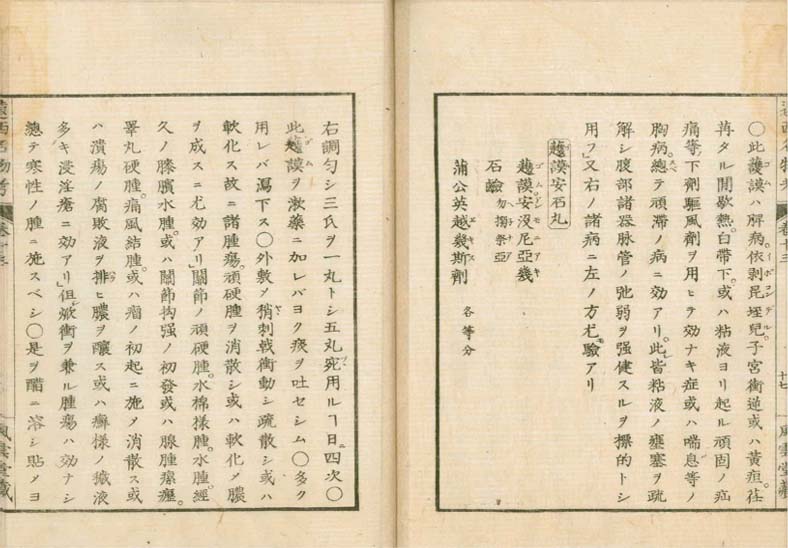 〇此護謨ハ解病。依剥昆垤児。子宮衝逆或ハ黄疸荏
苒タル間歇熱。白帯下。或ハ粘液ヨリ起ル頑固ノ疝
痛等下剤駆風剤ヲ用ヒテ効ナキ症或ハ喘息等ノ
胸病。総テ頑滞ノ病ニ効アリ。此皆粘液ノ壅塞ヲ疏
解シ腹部諸器脉管ノ弛弱ヲ強健スルヲ標的トシ
用フ」又右ノ諸病ニ左ノ方尤驗アリ
護謨安石丸
護謨安没尼亞幾
石鹼 勿搦祭亞
蒲公英越幾斯劑 各等分
十七
風雲堂藏
右調勻シ三氏ヲ一丸トシ五丸宛用ルヿ日四次〇
此護謨ヲ漱藥ニ加レバヨク痰ヲ吐セシム〇多ク
用レバ瀉下ス〇外敷ヲ稍刺戟衝動シ疏散シ或ハ
軟化ス故ニ諸腫瘍。頑硬腫ヲ消散シ或ハ軟化メ膿
ヲ成スニ尤効アリ」關節ノ頑硬腫。水棉様腫。水腫。經
久ノ膝臏水腫。或ハ關節拘强ノ初發或ハ腺腫瘰癧。
睪丸硬腫。痛風結腫。或ハ瘤ノ初起ニ施メ消散ス或
ハ潰瘍ノ腐敗液ヲ排ヒ膿ヲ釀ス或ハ癬様ノ液
多キ浸淫瘡ニ効アリ」但焮衝ヲ兼ル腫瘍ハ効ナシ
總テ寒性ノ腫ニ施スベシ〇是ヲ醋ニ溶シ貼メヨ
風雲堂藏